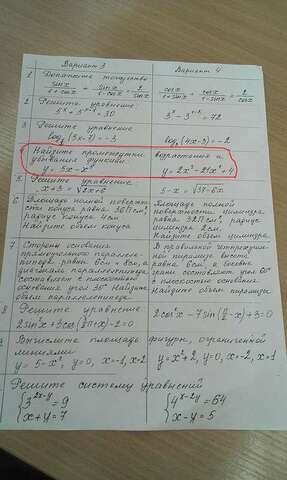 Вариант 3 Вариант 4
1 Докажите тождество
sinx/(1+cosx) + sinx/(1-cosx) = 2/sinx
cosx/(1+sinx) + cosx/(1-sinx) = 2/cosx
2 Решите уравнение
5^x + 5^(x-1) = 30
3^x - 3^(x-2) = 72
3 Решите уравнение
(3x-7) = -3
(4x-3) = -2
Найдите промежутки возрастания и
убывания функции
y = 3x - x³ y = 2x³ - 21x² + 4
5 Решите уравнение
x+3 = √2x+6 5-x = √37-6x
6 Площадь полной поверхности конуса равна 36П см²,
радиус конуса 4см
Найдите объем конуса
Площадь полной
поверхности цилиндра
равна 32П см²,
радиус цилиндра
2см.
Найдите объем цилиндра
7 Стороны основания
прямоугольного параллелепипеда равны 6см и см, а
диагональ параллелепипеда
составляет с плоскостью
основания угол Найдите
объем параллелепипеда
В правильной четырехугольной пирамиде высота
равна 6см, а боковые
грани составляют угол 60°
с плоскостью основания
Найдите объем пирамиды
8 Решите уравнение
2sin²x + 3cos( П+x) - 2 = 0
2cos²x - 7sin(П/2 - x) + 3 = 0
Вычислите площадь фигуры, ограниченной
линиями
y = 5-x², y=0, x=-1, x=2 y = x²+2, y=0, x=-2, x=1
Решите систему уравнений
{3^(2x-y) = 9
{x+y = 7
{4^(x-2y) = 64
{x-y = 5